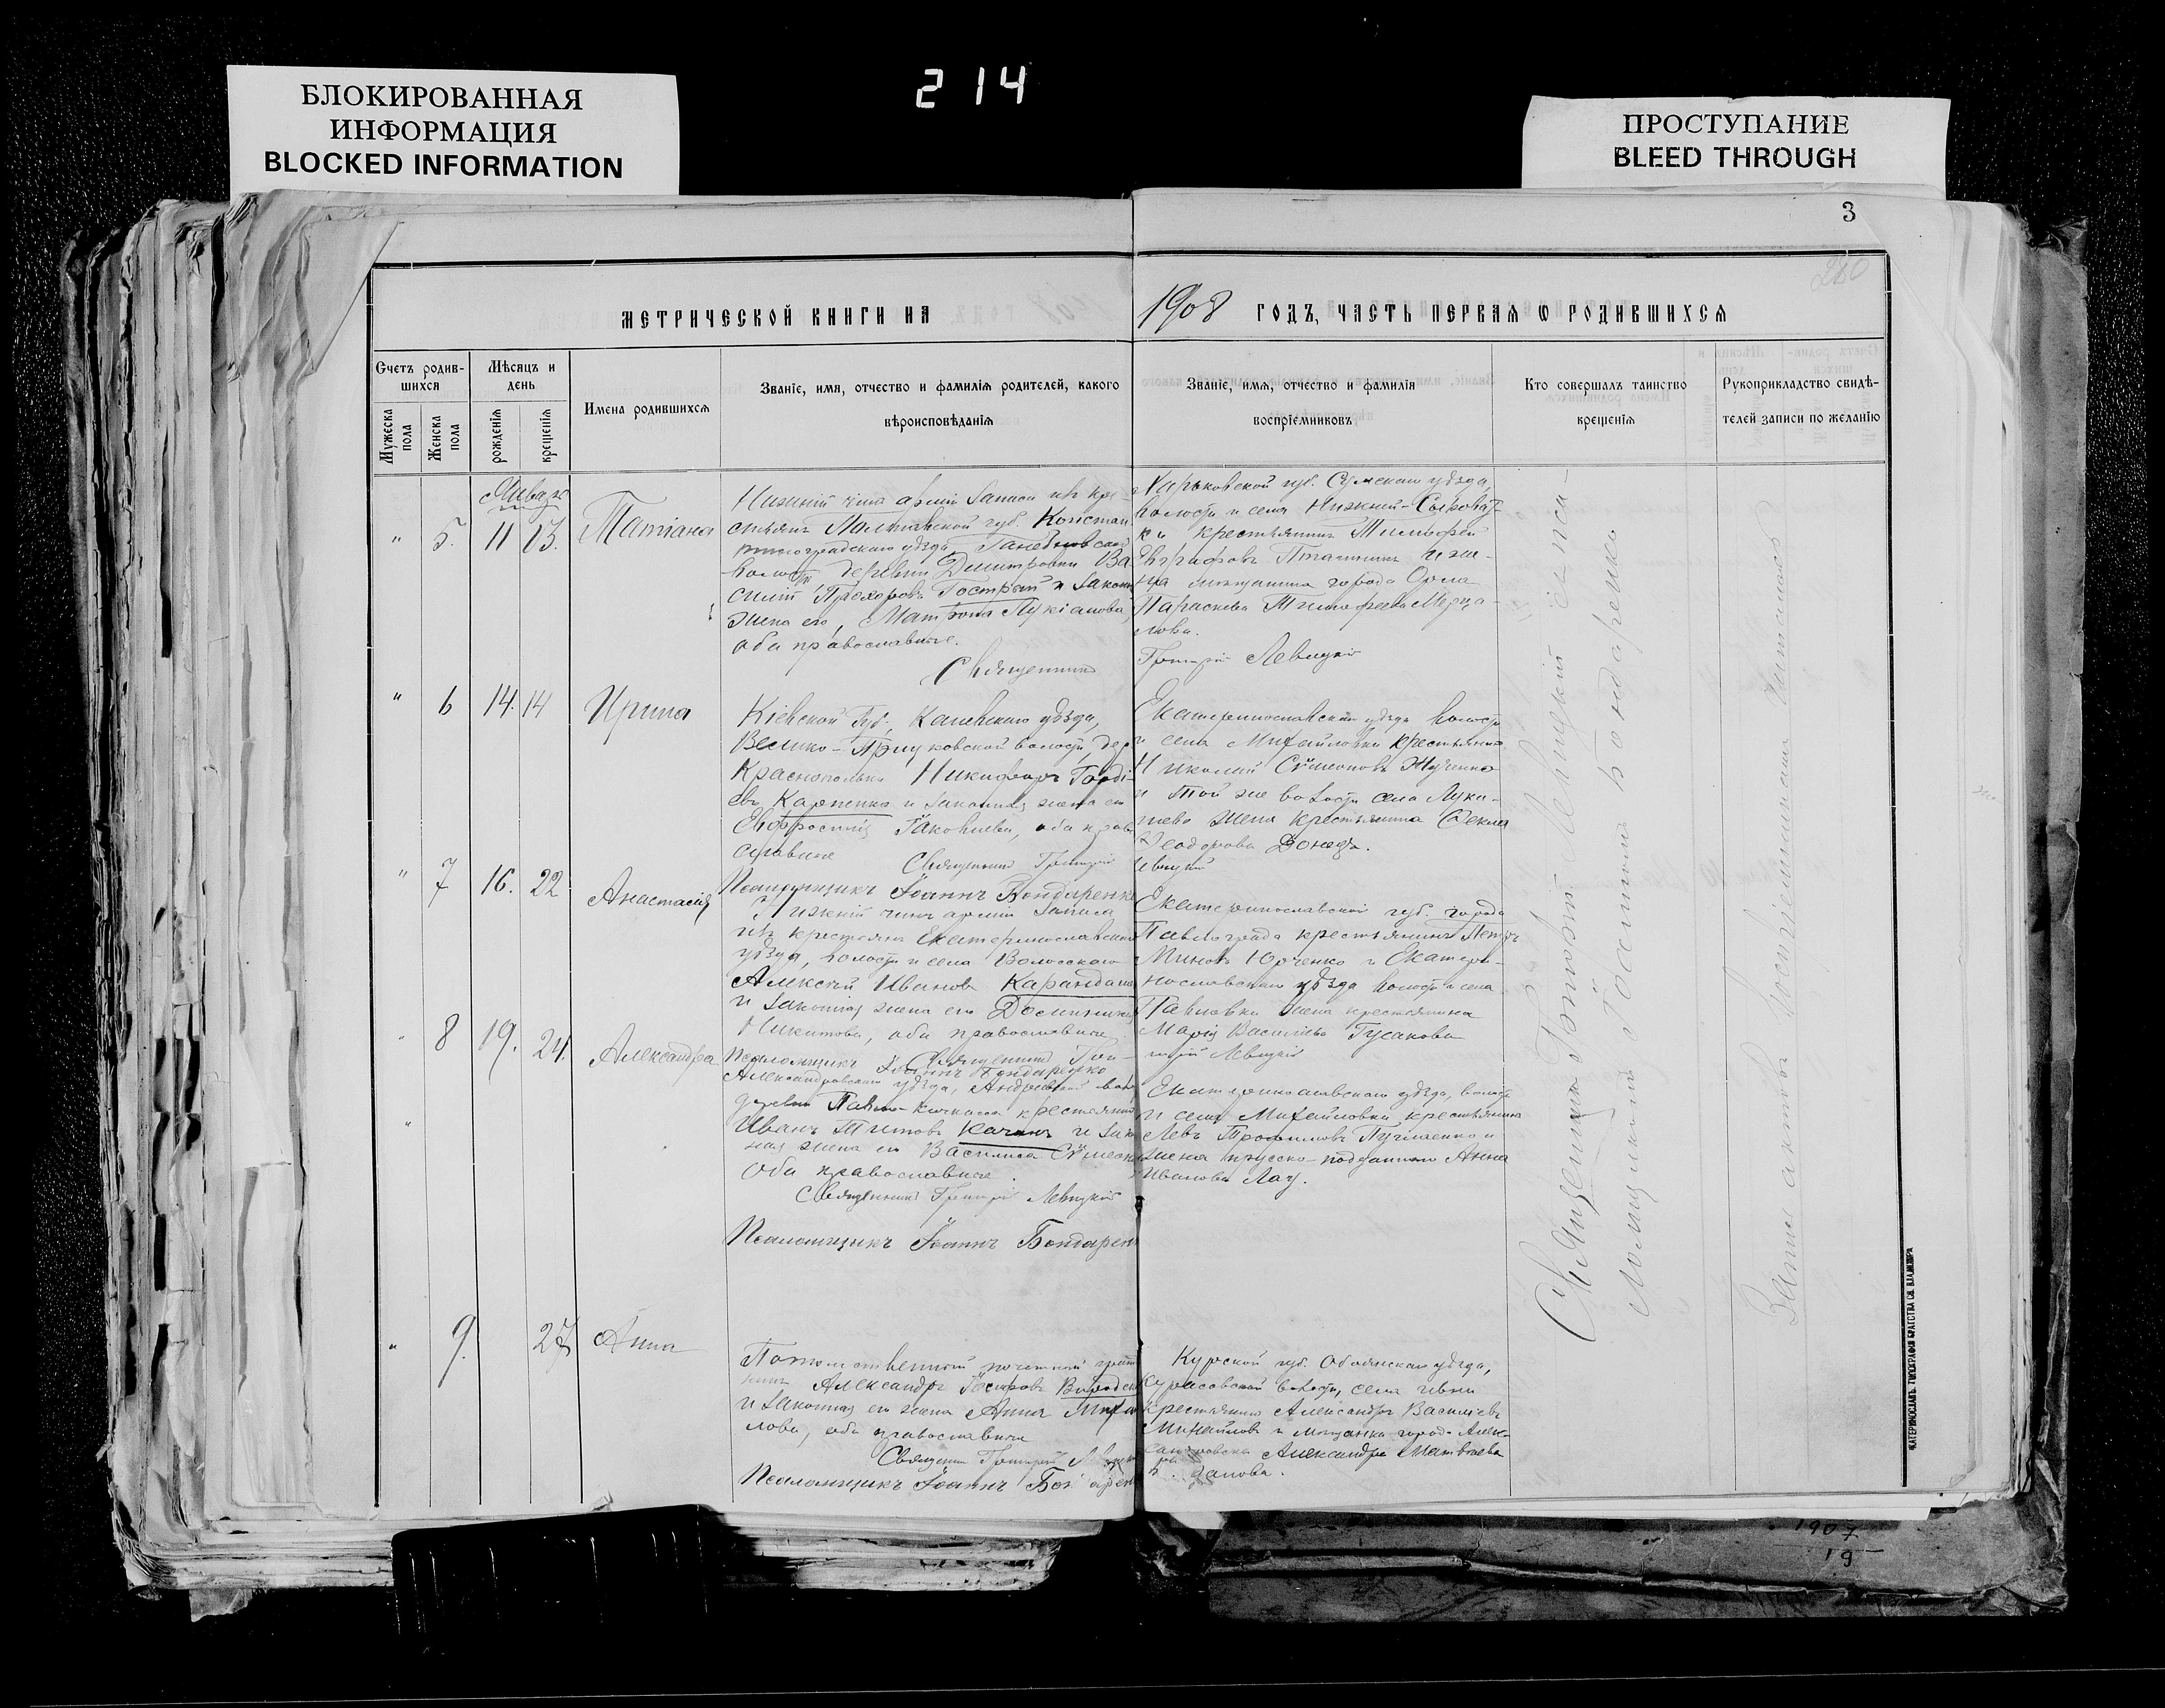 БЛОКИРОВАННАЯ
ИНФОРМАЦИЯ
BLOCKED INFORMATION
214
ПРОСТУПАНИЕ
BLEED THROUGH
3
260
МЕТРИЧЕСКОЙ КНИГИ НА 1908 ГОДЪ, ЧАСТЬ ПЕРВАЯ Ѡ РОДИВШИХСЯ
Счетъ родив-
шихся
Мужеска пола
Женска пола
Мѣсяцъ и
день
рожденія
крещенія
Имена родившихся
Званіе, имя, отчество и фамилія родителей, какого
вѣроисповѣданія
Званіе, имя, отчество и фамилія
воспріемниковъ
Кто совершалъ таинство
крещенія
Рукоприкладство свидѣ-
телей записи по желанію
Январь
" 5. 11 13. Татіана
Нижній чинъ арміи запаса изъ кре-
стьянъ Полтавской губ. Констан-
тиноградскаго уѣзда
волости деревни Димитровки Ва
силій Прохоровъ Гострый и законн
жена его, Матрона Лукіанова,
оба православные.
Священникъ
Харьковской губ. Сумскаго уѣзда,
волости и села Нижней-Сыроват-
ки крестьянинъ Тимофей
Евграфовъ
мѣщанина города Орла
Параскева Тимофеева Мерца-
лова.
Григорій Левицкій
" 6 14. 14 Ирина
Кіевской губ. Каневскаго уѣзда,
Велико-Прицковской волости, дер
Краснополки Никифоръ Горді-
евъ Карпенко и законная жена его
Евфросинія Іаковлева, оба право
славные
Священникъ Григорій
Екатеринославскаго уѣзда волости
и села Михайловки крестьянинъ
Николай Сѵмеоновъ Жученко
и той же волости села Лука-
шево жена крестьянина Ѳекла
Ѳеодорова Донецъ.
Левицкій
" 7 16. 22 Анастасія
Псаломщикъ Іоаннъ Бондаренко
Нижній чинъ арміи запаса
изъ крестьянъ Екатеринославскаго
уѣзда, волости и села Волосскаго
Алексѣй Ивановъ Карандаш
и законная жена его Домникія
Никитова, оба православные
Священникъ Гри-
Екатеринославской губ. города
Павлограда крестьянинъ Петръ
Миновъ Юрченко и Екатери-
нославскаго уѣзда волости и села
Павловки жена крестьянина
Марія Васильева Гусакова
горій Левицкій
" 8 19. 24. Александра
Псаломщикъ Іоаннъ Бондаренко
Александровскаго уѣзда, Андреевской вол
деревни Павло-Кичкаса крестьянинъ
Иванъ Титовъ Качанъ и зако
ная жена его Василиса Сѵмеон
Оба православные.
Священникъ Григорій Левицкій
Псаломщикъ Іоаннъ Бондарен
Екатеринославскаго уѣзда, волости
и села Михайловки крестьянинъ
Левъ Трофимовъ Пугаченко и
жена прусско-подданнаго Анна
Иванова Лау.
" 9. 27 Анна
Потомственный почетный граж
нинъ Александръ Іосифовъ
и законная его жена Анна Миха
лова, оба православные
Священникъ Григорій
Псаломщикъ Іоаннъ
Курской губ. Обоянскаго уѣзда,
Курасовской волости, села Ивни
крестьянинъ Александръ Васильевъ
Михайловъ и мѣщанка город. Алек-
сандровска Александра Матвѣева
Священникъ Григорій Левицкій
псаломщикъ Іоаннъ Бондаренко